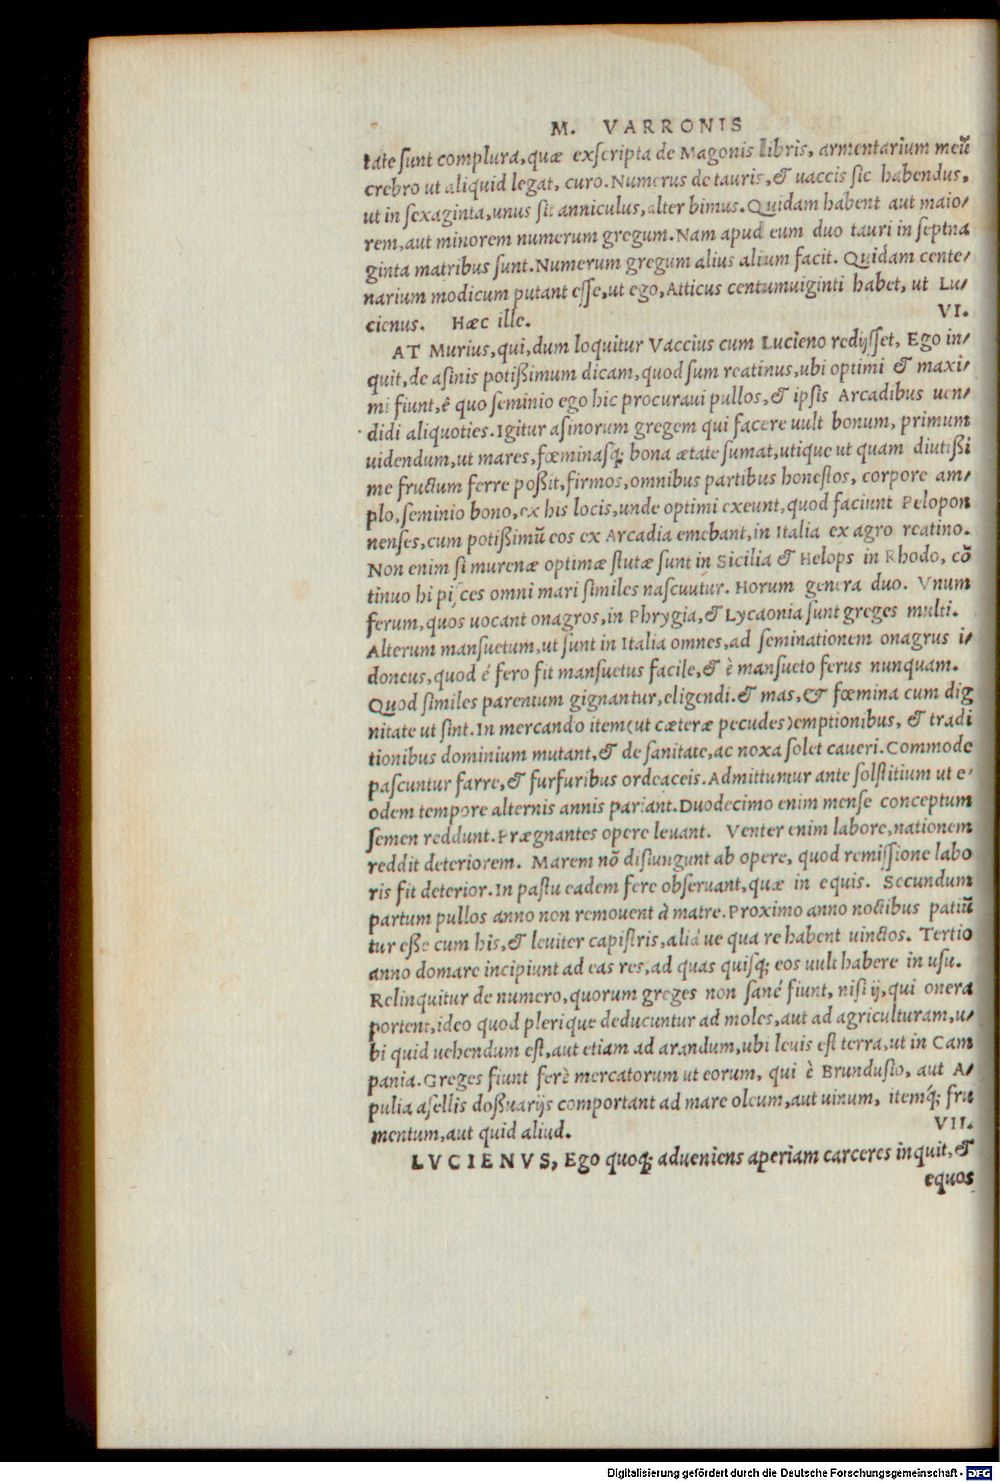 M. VARRONIS
tate ſunt complura, quæ exſcripta de Magonis libris, armentarium meū
crebro ut aliquid legat, curo. Numerus de tauris, & uaccis ſic habendus,
ut in ſexaginta, unus ſit anniculus, alter bimus. Quidam habent aut maio/
rem, aut minorem numerum gregum. Nam apud eum duo tauri in ſeptua
ginta matribus ſunt. Numerum gregum alius alium facit. Quidam cente/
narium modicum putant eſſe, ut ego, Atticus centumuiginti habet, ut Lu/
cienus. Hæc ille. VI.
AT Murius, qui, dum loquitur Vaccius cum Lucieno redijſſet, Ego in/
quit, de aſinis potißimum dicam, quod ſum reatinus, ubi optimi & maxi/
mi fiunt, ê quo ſeminio ego hic procuraui pullos, & ipſis Arcadibus uen/
didi aliquoties. Igitur aſinorum gregem qui facere uult bonum, primum
uidendum, ut mares, fœminasq; bona ætate ſumat, utique ut quam diutißi
me fructum ferre poßit, firmos, omnibus partibus honeſtos, corpore am/
plo, ſeminio bono, ex his locis, unde optimi exeunt, quod faciunt Pelopon
nenſes, cum potißimū eos ex Arcadia emebant, in Italia ex agro reatino.
Non enim ſi murenæ optimæ flutæ ſunt in Sicilia & Helops in Rhodo, cō
tinuo hi piſces omni mari ſimiles naſcuutur. Horum genera duo. Vnum
ferum, quos uocant onagros, in Phrygia, & Lycaonia ſunt greges multi.
Alterum manſuetum, ut ſunt in Italia omnes, ad ſeminationem onagrus i/
doneus, quod é fero fit manſuetus facile, & è manſueto ferus nunquam.
Quod ſimiles parentum gignantur, eligendi. & mas, & fœmina cum dig
nitate ut ſint. In mercando item (ut cæteræ pecudes) emptionibus, & tradi
tionibus dominium mutant, & de ſanitate, ac noxa ſolet caueri. Commode
paſcuntur farre, & furfuribus ordeaceis. Admittuntur ante ſolſtitium ut e/
odem tempore alternis annis pariant. Duodecimo enim menſe conceptum
ſemen reddunt. Prægnantes opere leuant. Venter enim labore, nationem
reddit deteriorem. Marem nō diſiungunt ab opere, quod remiſſione labo
ris fit deterior. In paſtu eadem fere obſeruant, quæ in equis. Secundum
partum pullos anno non remouent à matre. Proximo anno noctibus patiū
tur eſſe cum his, & leuiter capiſtris, alia ue qua re habent uinctos. Tertio
anno domare incipiunt ad eas res, ad quas quiſq; eos uult habere in uſu.
Relinquitur de numero, quorum greges non ſané fiunt, niſi ij, qui onera
portent, ideo quod plerique deducuntur ad moles, aut ad agriculturam, u/
bi quid uehendum eſt, aut etiam ad arandum, ubi leuis eſt terra, ut in Cam
pania. Greges fiunt ferè mercatorum ut eorum, qui è Brunduſio, aut A/
pulia aſellis doßuarijs comportant ad mare oleum, aut uinum, itemq́; fru
mentum, aut quid aliud. VII.
LVCIENVS, Ego quoq; adueniens aperiam carceres inquit, &
equos
Digitalisierung gefördert durch die Deutsche Forschungsgemeinschaft - DFG